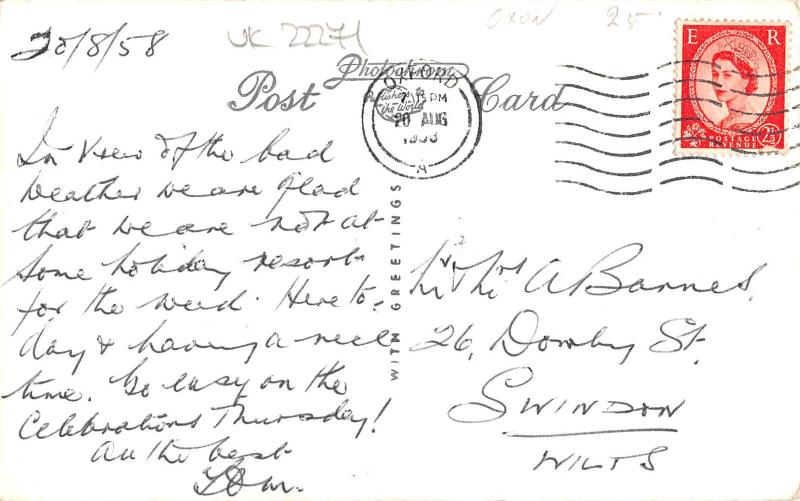 20/8/58
UK 22271
OXON 25
E R
POSTAGE
REVENUE
2½
Photochrom
Publishers to
the World
Post Card
OXFORD
15 PM
20 AUG
A
WITH GREETINGS
In view of the bad
weather we are glad
that we are not at
some holiday resort
for the week. Here to-
day & having a nice
time. Go easy on the
Celebrations Thursday!
All the best
A Barnes,
26, Dowby St.
SWINDON
WILTS